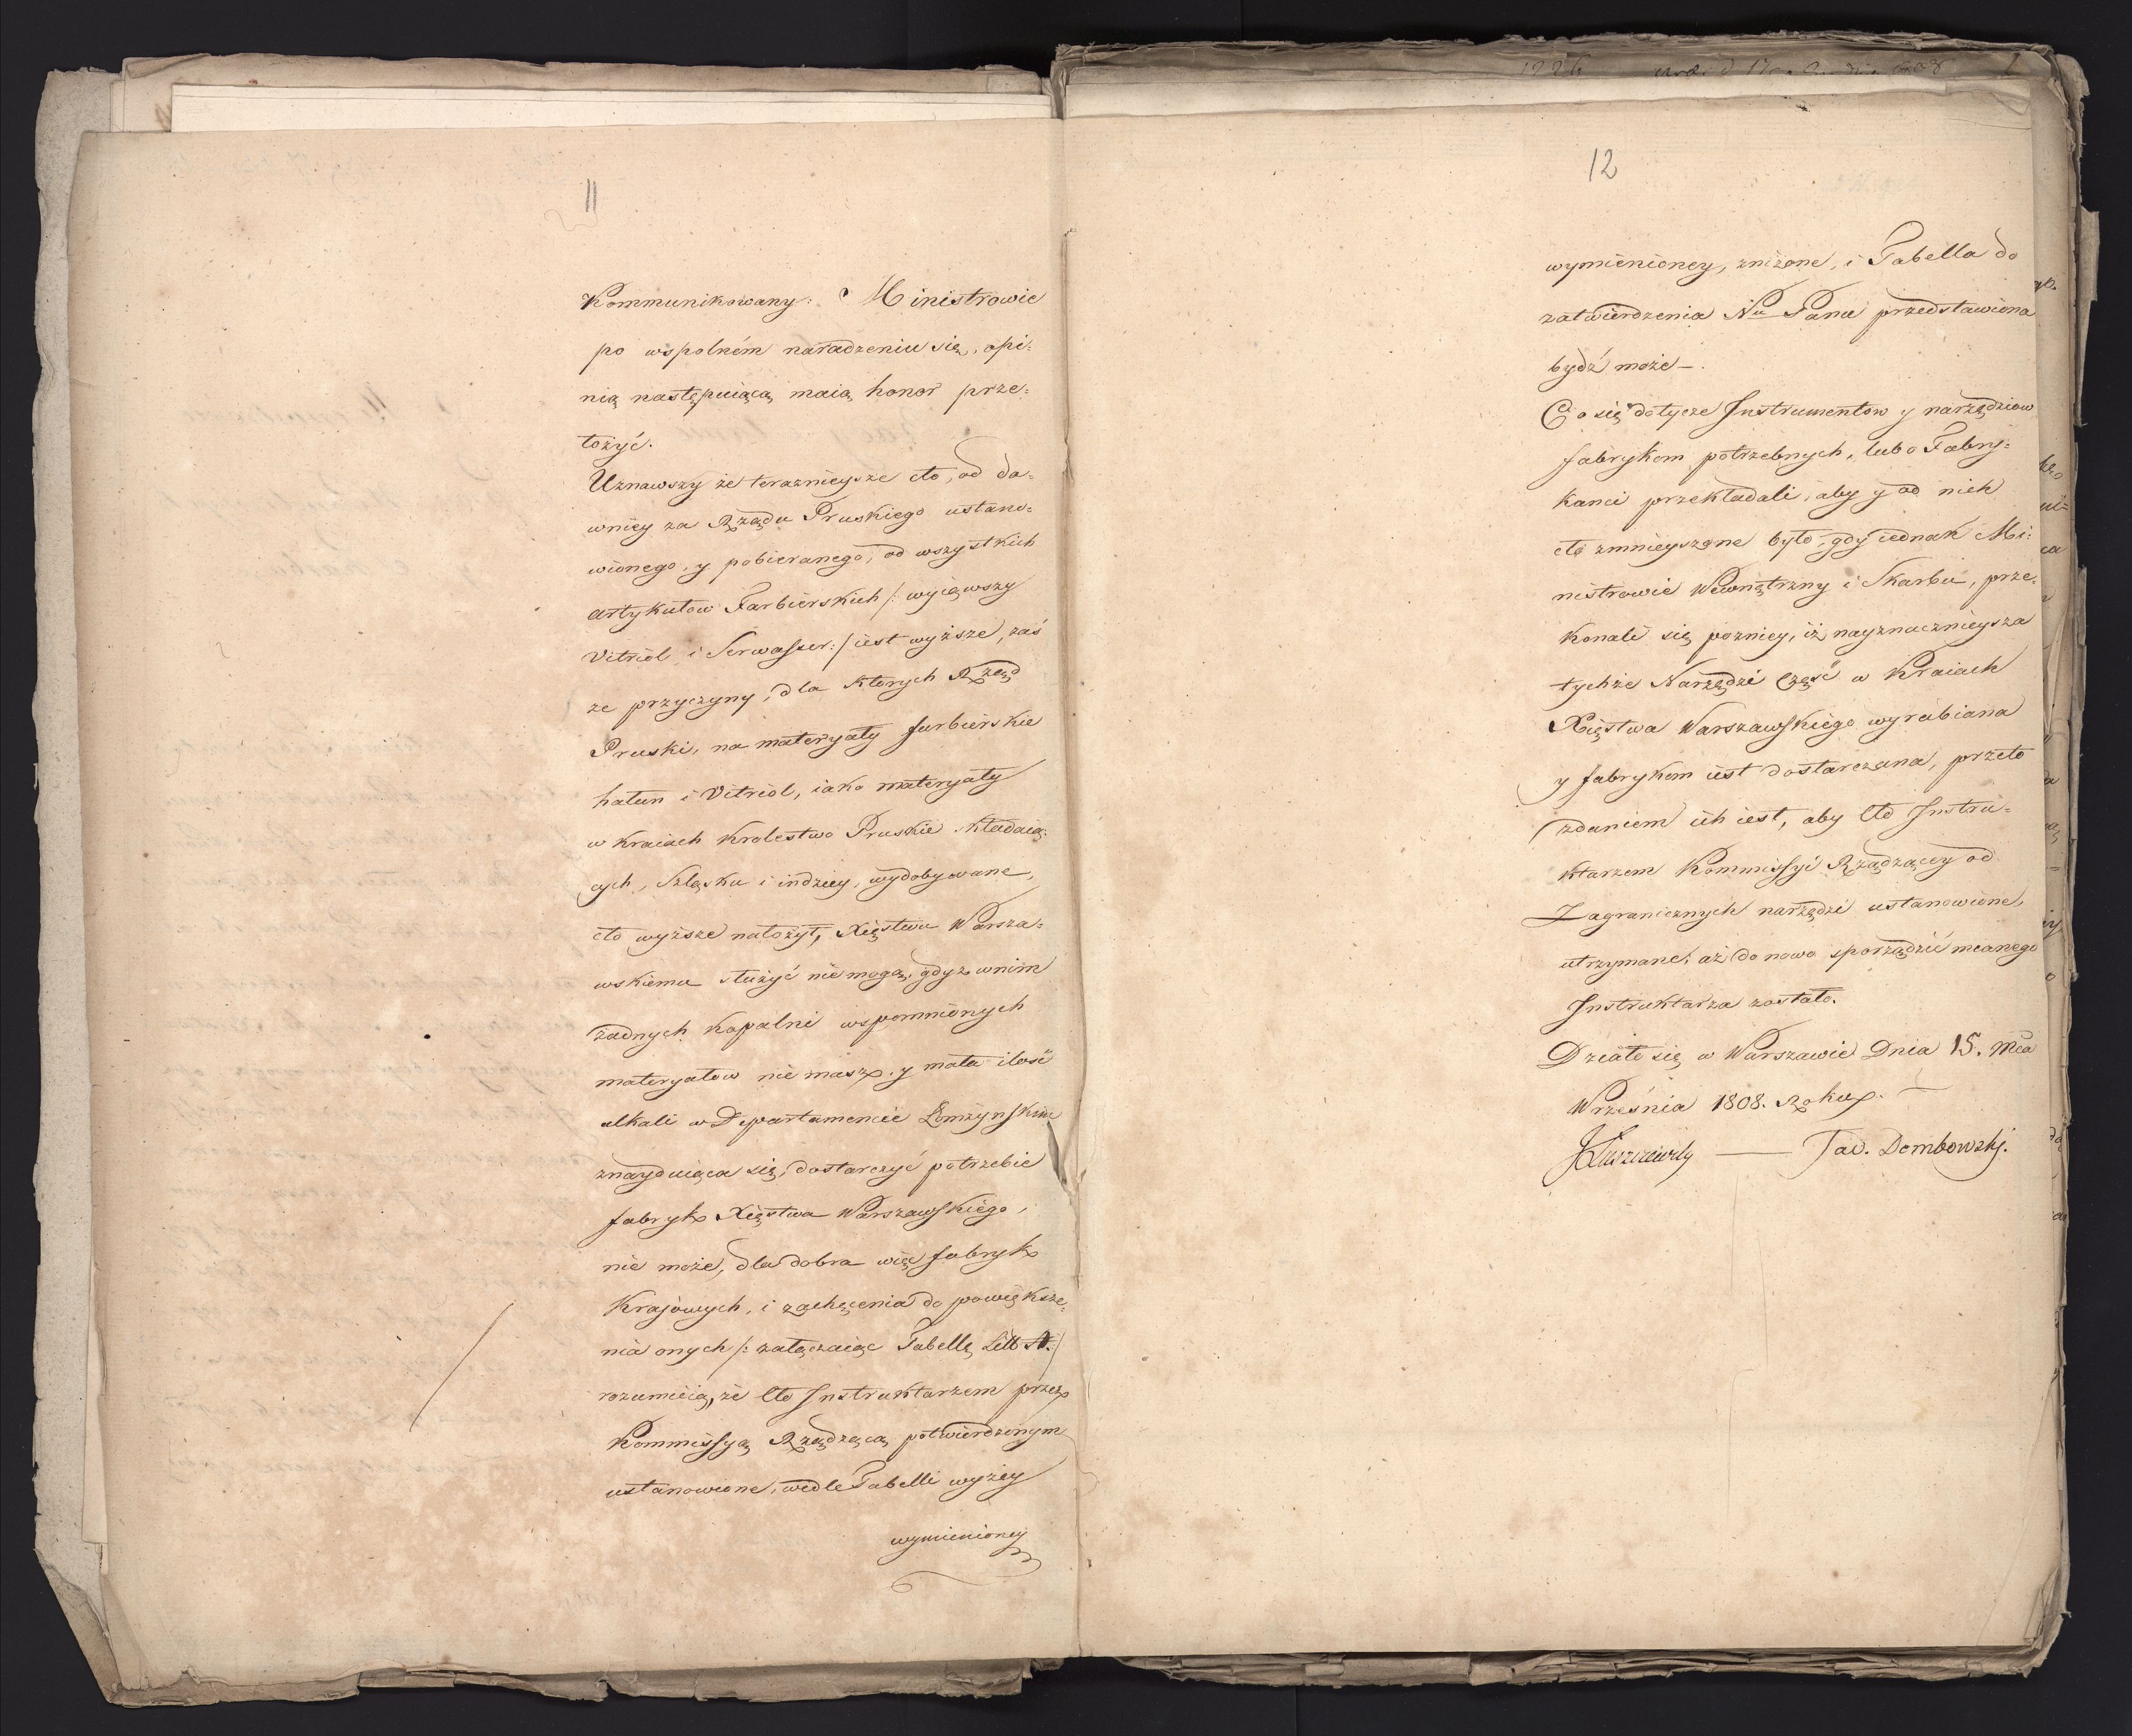 11
Kommunikowany: Ministrowie
po wspolném naradzeniu się, opi:
nią następuiącą maią honor prze:
łożyć.
Uznawszy że teraznieysze cło, od da:
wniey za Rządu Pruskiego ustano:
wionego, y pobieranego, od wszystkich
artykułow Farbierskich /: wyiąwszy
Vitriol i Serwasser:/ iest wyższe, zaś
ze przyczyny, dla ktorych Rząd
Pruski, na materyały farbierskie
hałun i Vitriol, iako materyały
w kraiach Krolestwo Pruskie składaią:
cych, Szląsku i indziey, wydobywane,
cło wyższe nałożył, Xięstwu Warsza:
wskiemu służyć nie mogą, gdyż w nim
żadnych kopalni wspomnionych
materyałow nie masz, y mała ilość
alkali w Departamencie Łomżynskim
znayduiąca się, dostarczyć potrzebie
fabryk Xięstwa Warszawskiego,
nie może, dla dobra więc fabryk
Krajowych, i zachęcenia do powiększe:
nia onych /: załączaiąc Tabellę Litt A:/
rozumieią, że Cło Instruktarzem przez
Kommissyą Rządzącą potwierdzonym
ustanowione, wedle Tabelli wyżey
wymienioney
12
wymienioney, zniżone, i Tabella do
zatwierdzenia Nu Panu przedstawiona
bydź może —.
Co się dotycze Instrumentow y narzędziow
fabrykom potrzebnych, lubo Fabry:
kanci przekładali, aby y od nich
cło zmnieyszone było, gdy iednak Mi:
nistrowie Wewnętrzny i Skarbu, prze:
konali się pozniey, iż nayznacznieysza
tychże Narzędzi część w Kraiach
Xięstwa Warszawskiego wyrabiana
y fabrykom iest dostarczana, przeto
zdaniem ich iest, aby Cło Instru:
ktarzem Kommissyi Rządzącey od
Zagranicznych narzędzi ustanowione,
utrzymane, aż do nowo sporządzić mianego
Instruktarza zostało.
Działo się w Warszawie Dnia 15. Mca
Września 1808. Roku. —
JŁuszczewsky — Taw. Dembowskj.